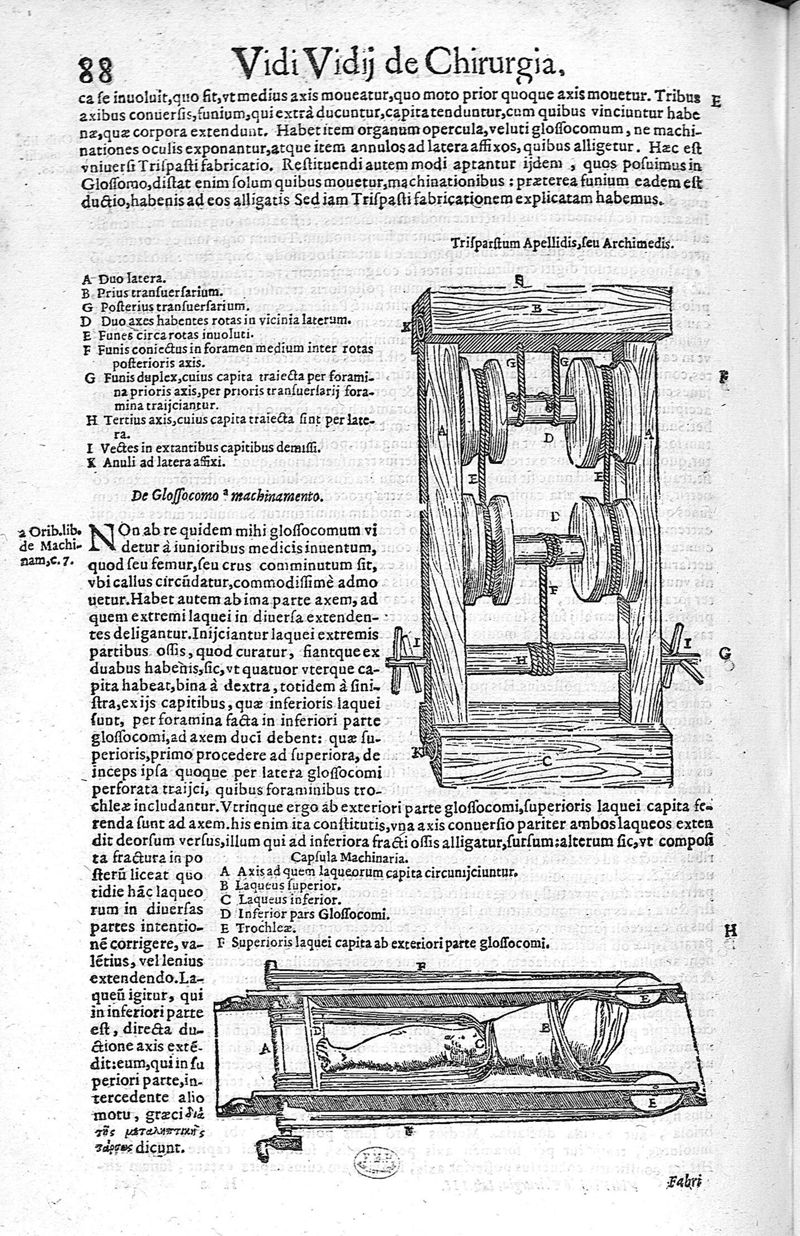 88
Vidi Vidij de Chirurgia,
ca se inuoluit, quo fit, vt medius axis moueatur, quo moto prior quoque axis mouetur. Tribus
E
axibus conuersis, funium, qui extrà ducuntur, capita tenduntur, cum quibus vinciuntur habe
næ, quæ corpora extendunt. Habet item organum opercula, veluti glossocomum, ne machi-
nationes oculis exponantur, atque item annulos ad latera affixos, quibus alligetur. Hæc est
vniuersi Trispasti fabricatio. Restituendi autem modi aptantur ijdem, quos posuimus in
Glossomo, distat enim solum quibus mouetur, machinationibus: præterea funium eadem est
ductio, habenis ad eos alligatis Sed iam Trispasti fabricationem explicatam habemus.
Trisparstum Apellidis, seu Archimedis.
A Duo latera.
B Prius transuersarium.
G Posterius transuersarium.
D Duo axes habentes rotas in vicinia laterum.
E Funes circa rotas inuoluti.
F Funis coniectus in foramen medium inter rotas
posterioris axis.
G Funis duplex, cuius capita traiecta per forami-
na prioris axis, per prioris transuersarij fora-
mina traijciantur.
H Tertius axis, cuius capita traiecta sint per late-
ra.
I Vectes in extantibus capitibus demissi.
K Anuli ad latera affixi.
B
K
G
G
A
A
D
E
E
D
F
I
H
I
K
C
F
G
De Glossocomo a machinamento.
a Orib. lib.
de Machi-
nam, c. 7.
NOn ab re quidem mihi glossocomum vi
detur à iunioribus medicis inuentum,
quod seu femur, seu crus comminutum sit,
vbi callus circũdatur, commodissimè admo
uetur. Habet autem ab ima parte axem, ad
quem extremi laquei in diuersa extenden-
tes deligantur. Inijciantur laquei extremis
partibus ossis, quod curatur, fiantque ex
duabus habenis, sic, vt quatuor vterque ca-
pita habeat, bina à dextra, totidem à sini-
stra, ex ijs capitibus, quæ inferioris laquei
sunt, per foramina facta in inferiori parte
glossocomi, ad axem duci debent: quæ su-
perioris, primo procedere ad superiora, de
inceps ipsa quoque per latera glossocomi
perforata traijci, quibus foraminibus tro-
chleæ includantur. Vtrinque ergo ab exteriori parte glossocomi, superioris laquei capita fe-
renda sunt ad axem. his enim ita constitutis, vna axis conuersio pariter ambos laqueos exten
dit deorsum versus, illum qui ad inferiora fracti ossis alligatur, sursum: alterum sic, vt composi
ta fractura in po
sterũ liceat quo
tidie hãc laqueo
rum in diuersas
partes intentio-
nē corrigere, va-
lētius, vel lenius
extendendo. La-
queũ igitur, qui
in inferiori parte
est, directa du-
ctione axis extē-
dit: eum, qui in su
periori parte, in-
tercedente alio
motu, græci διὰ
τῆς μεταληπτικῆς
dicunt.
Capsula Machinaria.
A Axis ad quem laqueorum capita circunijciuntur.
B Laqueus superior.
C Laqueus inferior.
D Inferior pars Glossocomi.
E Trochleæ.
F Superioris laquei capita ab exteriori parte glossocomi.
H
F
E
D
A
C
B
E
F
Fabri